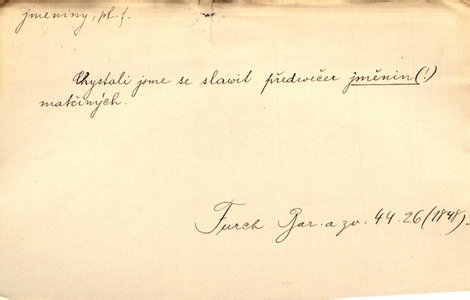 jmeniny, pl. f.
Chystali jsme se slawit předwečer jměnin (!)
matčiných.
Furch Bar. a zv. 44. 26 (1848)